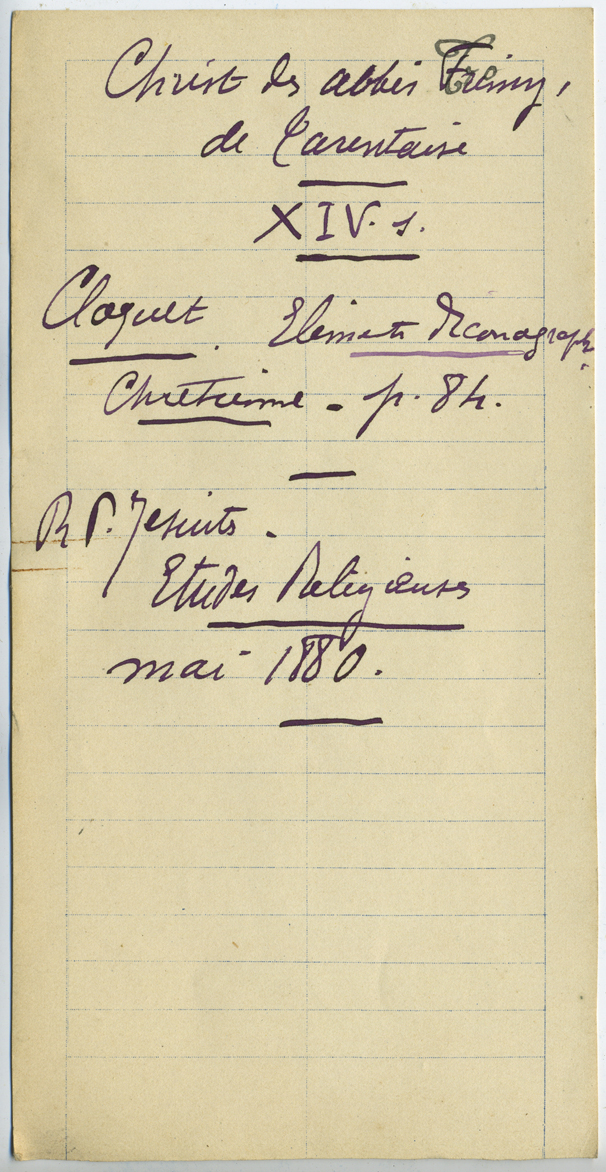 Christ des abbés Tremy,
de Tarentaise
XIV. s.
Cloquet. Eléments d'Iconographie
Chrétienne - p. 84.
R P. Jésuites -
Etudes Religieuses
mai 1880.